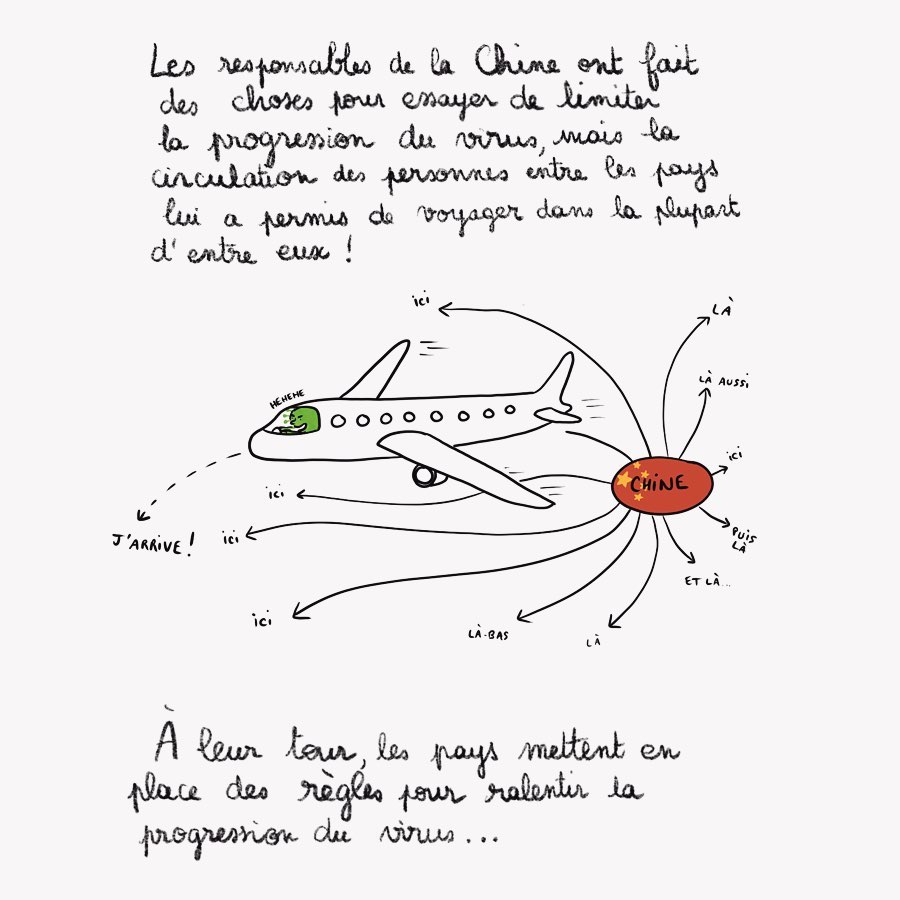 Les responsables de la Chine ont fait
des choses pour essayer de limiter
la progression du virus, mais la
circulation des personnes entre les pays
lui a permis de voyager dans la plupart
d'entre eux !
ici
LÀ
LÀ AUSSI
HEHEHE
ici
CHINE
ici
J'ARRIVE !
ici
PUIS
LÀ
ET LÀ...
ici
LÀ-BAS
LÀ
À leur tour, les pays mettent en
place des règles pour ralentir la
progression du virus...